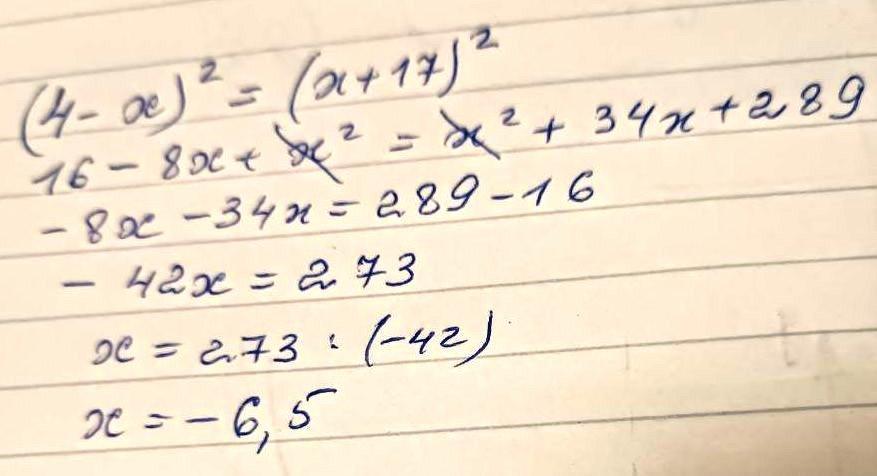 (4-x)² = (x+17)²
16 - 8x + x² = x² + 34x + 289
-8x - 34x = 289 - 16
- 42x = 273
x = 273 : (-42)
x = - 6,5